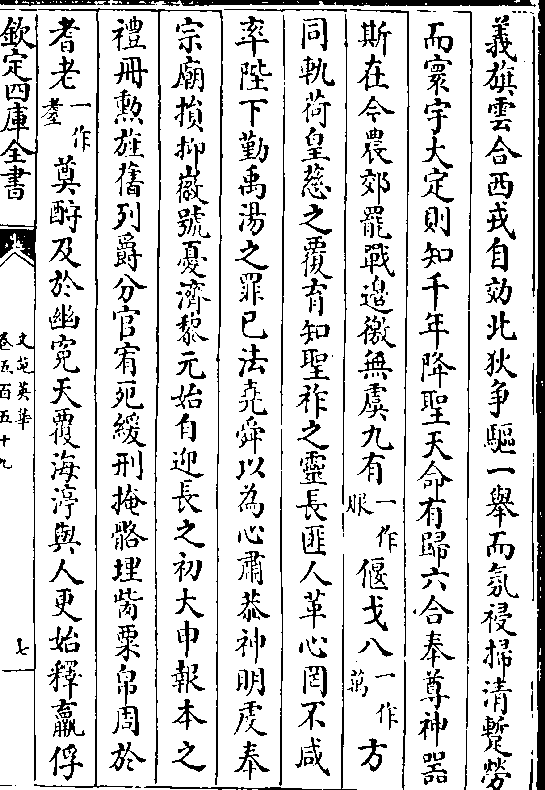 義旗雲合西戎自効北狄争驅一舉而氛祲掃清蹔勞
而寰宇大定則知千年降聖天命有歸六合奉尊神器
斯在今農郊罷戰邉徼無虞九有一作服偃戈八一作萬方
同軌荷皇慈之覆育知聖祚之靈長匪人革心罔不咸
率陛下勤禹湯之罪已法堯舜以為心肅恭神明虔奉
宗廟損抑徽號憂濟黎元始自迎長之初大申報本之
禮冊勲旌舊列爵分官宥死緩刑掩骼埋胔粟帛周於
耆老一作耋奠酹及於幽寃天覆海渟與人更始釋羸俘
欽定四庫全書
文苑英華
卷五百五十九
七